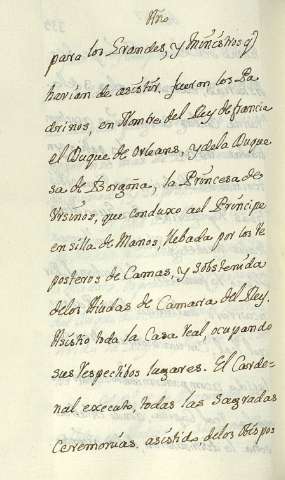 Año
para los Grandes, y Ministros q
hevian de asistir. fueron los Pa
drinos, en Nombre del Rey de francia
el Duque de Orleans, y dela Duque
sa de Borgoña, la Princesa de
Vrsinos, que conduxo aol Principe
en silla de Manos, llebada por los Re
posteros de Camas, y sobstenida
delos Aiudas de Camara del Rey.
Asistio toda la Casa Real, ocupando
sus respectibos lugares. El Carde-
nal executo, todas las sagradas
Ceremonias, asistido, delos Obispos